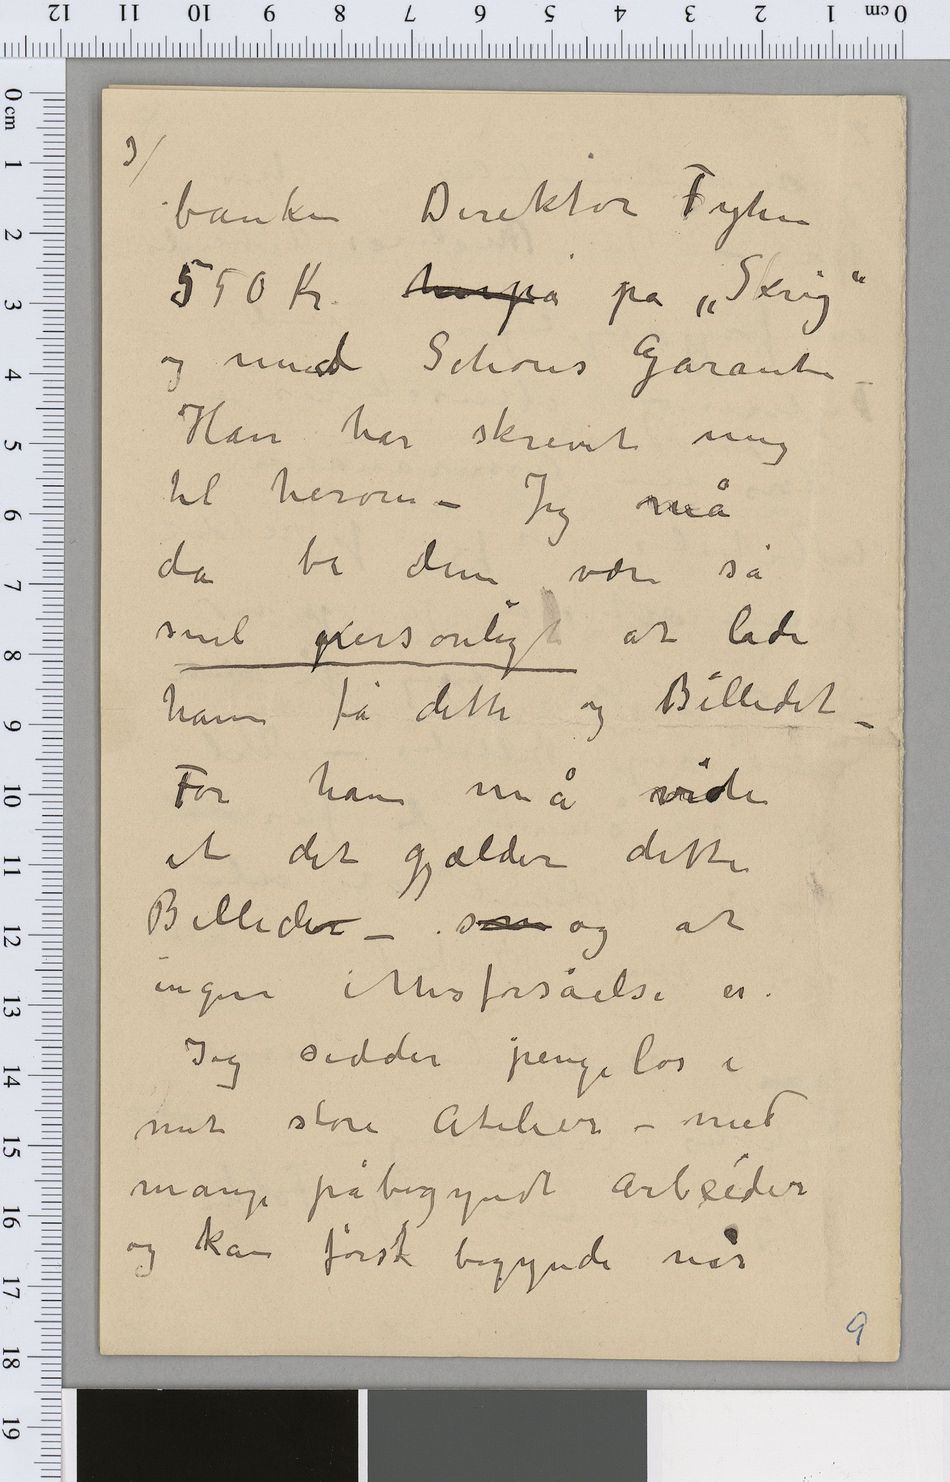 3/
banken Direktør Fyhn
550 Kr. herpå på „Skrig“
og med Schous Garanti
Han har skrevet mig
til herom – Jeg må
da be dem være så
snil personligt at lade
ham få dette og Billedet –
For han må vide
at det gjælder dette
Billede – som og at
ingen Misforsåelse er.
Jeg sidder pengeløs i
mit store Atelier – med
mange påbegyndt Arbeider
og kan først begynde når
9